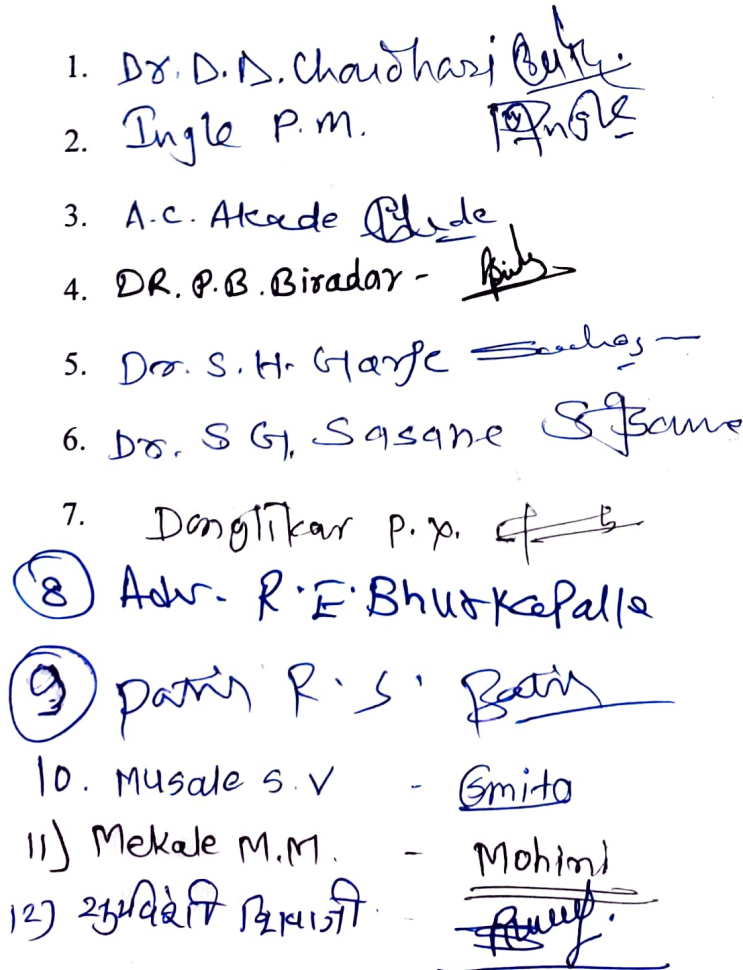 1. Dr. D. D. Chaudhari
2. Ingle P. M. Ingle
3. A. C. Akade
4. DR. P. B. Biradar -
5. Dr. S. H. Garje
6. Dr. S G. Sasane
7. Danglikar P. P.
8 Adv. R. E. Bhurkapalle
9 Patil R. S. Patil
10. Musale S. V - Smita
11) Mekale M.M. - Mohini
12) शिवाजी -